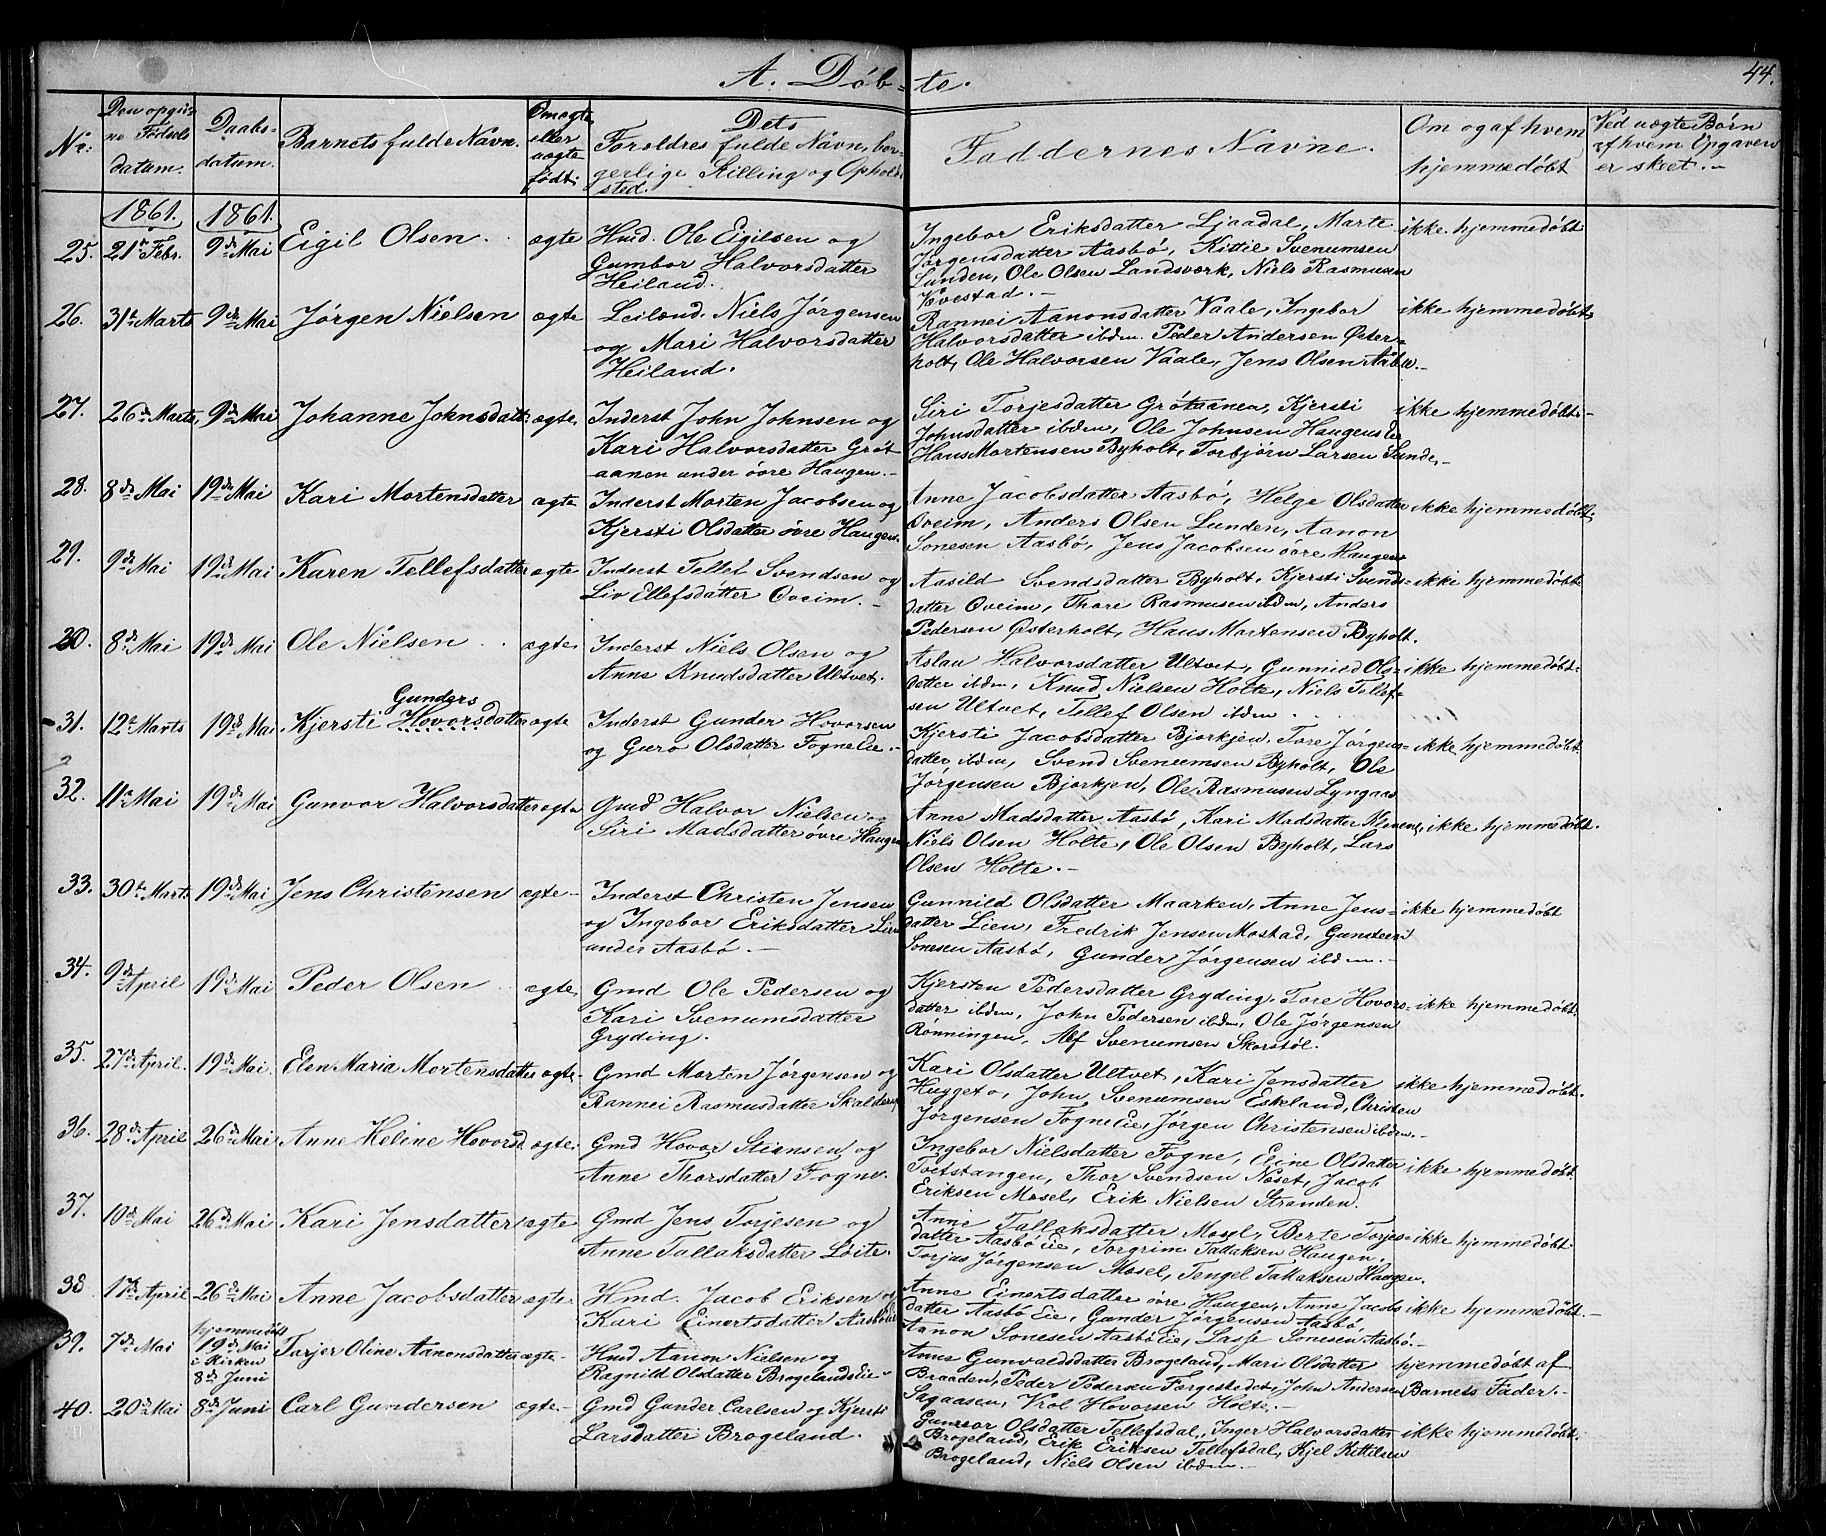 A. Døb-te.
44.
No:
Den opgiv-
ne Fødsels
datum.
Daabs-
datum.
Barnets fulde Navn.
Om ægte
eller
uægte
født:
Dets
Forældres fulde Navn, bor-
gerlige Stilling og Opholds
sted.
Faddernes Navne.
Om og af hvem
hjemmedøbt
Ved uægte Børn
af hvem Opgaven
er skeet. -
1861. 1861.
25. 21de Febr. 9de Mai Eigil Olsen. ægte Hmd. Ole Eigilsen og
Gumbor Halvorsdatter
Heiland.
Ingebor Eriksdatter Ljaadal, Marte
Jørgensdatter Aasbø, Kittil Svenumsen
Lunden, Ole Olsen Landsværk, Niels Rasmusen
Vævestad. -
ikke hjemmedøbt
26. 31te Marts 9de Mai Jørgen Nielsen ægte Leilænd. Niels Jørgensen
og Mari Halvorsdatter
Heiland.
Rannei Aanonsdatter Vaale, Ingebor
Halvorsdatter ibdm. Peder Andersen Øster-
holt, Ole Halvorsen Vaale, Jens Olsen Aabø. -
ikke hjemmedøbt
27. 26de Marts, 9de Mai Johanne Johnsdatt: ægte. Inderst John Johnsen og
Kari Halvorsdatter Grøt
aanen under øvre Haugen. -
Siri Torjesdatter Grøtaanen, Kjersti
Johnsdatter ibdem, Ole Johnsen Haugen
Hans Mortensen Byholt, Torbjørn Larsen Sunde, -
ikke hjemmedøbt -
28. 8de Mai 19de Mai Kari Mortensdatter ægte Inderst Morten Jacobsen og
Kjersti Olsdatter øvre Haugen.
Anne Jacobsdatter Aasbø, Helge Olsdatter
Oveim, Anders Olsen Lunden, Aanon
Sonesen Aasbø, Jens Jacobsen øvre Haugen
ikke hjemmedøbt
29. 9de Mai 19de Mai Karen Tellefsdatter ægte Inderst Tellef Svendsen og
Liv Ellefsdatter Oveim. -
Aasild Svendsdatter Byholt, Kjersti Svends-
datter Oveim, Thore Rasmusen ibdm, Anders
Pedersen Østerholt, Hans Mortensen Byholt.
ikke hjemmedøbt
30. 8de Mai 19de Mai Ole Nielsen ægte. Inderst Niels Olsen og
Anne Knudsdatter Ultvet.
Aslau Halvorsdatter Ultvet, Gunnild Ols-
datter ibdm, Knud Nielsen Holte, Niels Tellef-
sen Ultvet, Tellef Olsen ibdm
ikke hjemmedøbt
Gunders
-31. 12te Marts 19de Mai Kjersti Hovorsdatter ægte Inderst Gunder Hovorsen
og Guro Olsdatter Fognelie. -
Kjersti Jacobsdatter Bjorkjen. Tore Jørgens-
datter ibdm, Svend Svenumsen Byholt, Ole
Jørgensen Bjorkjen, Ole Rasmusen Lyngaas
ikke hjemmedøbt
32. 11te Mai 19de Mai Gunvor Halvorsdatter ægte Gmd Halvor Nielsen og
Siri Madsdatter øvre Haugen
Anne Madsdatter Aasbø, Kari Madsdatter
Niels Olsen Holte, Ole Olsen Byholt, Lars
Olsen Holte. -
ikke hjemmedøbt.
33. 30te Marts 19de Mai Jens Christensen ægte - Inderst Christen Jensen
og Ingebor Eriksdatter Lien
under Aasbø. -
Gunnild Olsdatter Maarken, Anne Jens-
datter Lien, Fredrik Jensen Mostad, Gunsteen
Sonesen Aasbø, Gunder Jørgensen ibdm. -
ikke hjemmedøbt
34. 9de April 19de Mai Peder Olsen ægte Gmd Ole Pedersen og
Kari Svenumsdatter
Gryding.
Kjersten Pedersdatter Gryding, Tore Hovors-
datter ibdm, John Pedersen ibdm, Ole Jørgensen
Rønningen, Alf Svenumsen Skorstøl.
ikke hjemmedøbt.
35. 27de April. 19de Mai. Elen Maria Mortensdatter ægte. Gmd Morten Jørgensen og
Rannei Rasmusdatter
Kari Olsdatter Ultvet, Kari Jensdatter
Hugget o, John Svenumsen Eskeland, Christen
Jørgensen Fognelie, Jørgen Christensen ibdm. -
ikke hjemmedøbt.
36. 28de April 26de Mai Anne Heline Hovorsd ægte. Gmd Hovor Steensen og
Anne Thorsdatter Fogne.
Ingebor Nielsdatter Fogne, Eline Olsdatter
Tvetstangen, Thor Svendsen Næset, Jacob
Eriksen Mosel, Erik Nielsen Stranden.
ikke hjemmedøbt.
37. 10de Mai 26de Mai Kari Jensdatter ægte Gmd Jens Torjesen og
Anne Tallaksdatter Løite.
Anne Tallaksdatter Mosel, Berte Torjes-
datter Aasbø Eie, Torgrim Tallaksen Haugen,
Torjus Jørgensen Mosel, Tengel Tallaksen Haugen.
ikke hjemmedøbt
38 17de April 26de Mai Anne Jacobsdatter ægte Hmd. Jacob Eriksen og
Kari Einertsdatter Aasbøeie
Anne Einertsdatter øvre Haugen, Anne Jacobs
datter Aasbø Eie, Gunder Jørgensen Aasbø,
Aanon Sonesen Aasbø Eie, Lasse Sonesen Aasbø. -
ikke hjemmedøbt. -
39. 7de Mai hjemmedøbt
19de Mai
i Kirken
8de Juni
Torjer Oline Aanonsdatter ægte - Hmd Aanon Nielsen og
Ragnild Olsdatter Brogelandslie -
Anne Gunvaldsdatter Brogeland, Mari Olsdatter
Braaden, Peder Pedersen Færgestedet, John Andersen
Sagaasen, Vrol Hovorsen Holte. -
hjemmedøbt af
Barnets Fader. -
40. 20de Mai 8de Juni Carl Gundersen ægte - Gmd Gunder Carlsen og Kjersti
Larsdatter Brogeland.
Gunvor Olsdatter Tellefsdal, Inger Halvorsdatter
Brogeland, Erik Eriksen Tellefsdal, Kjel Kittilsen
Brogeland, Niels Olsen ibdm -
ikke hjemmedøbt.